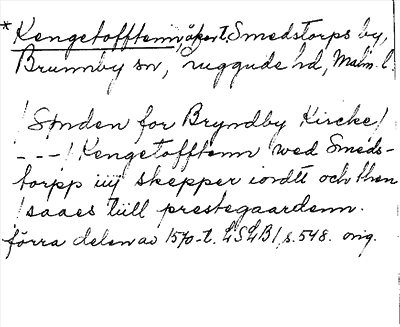 *Kengetofftenn, åkert. Smedstorps by,
Brunnby sn, Luggude hd, Malm. l.
! Sønden for Bryndby Kircke!
---! Kengetofftenn wed Smeds-
torpp iiij skepper iordtt och then
! saaes tiill prestegaardenn.
förra delen av 1570-t. LSLB1, s. 548. orig.